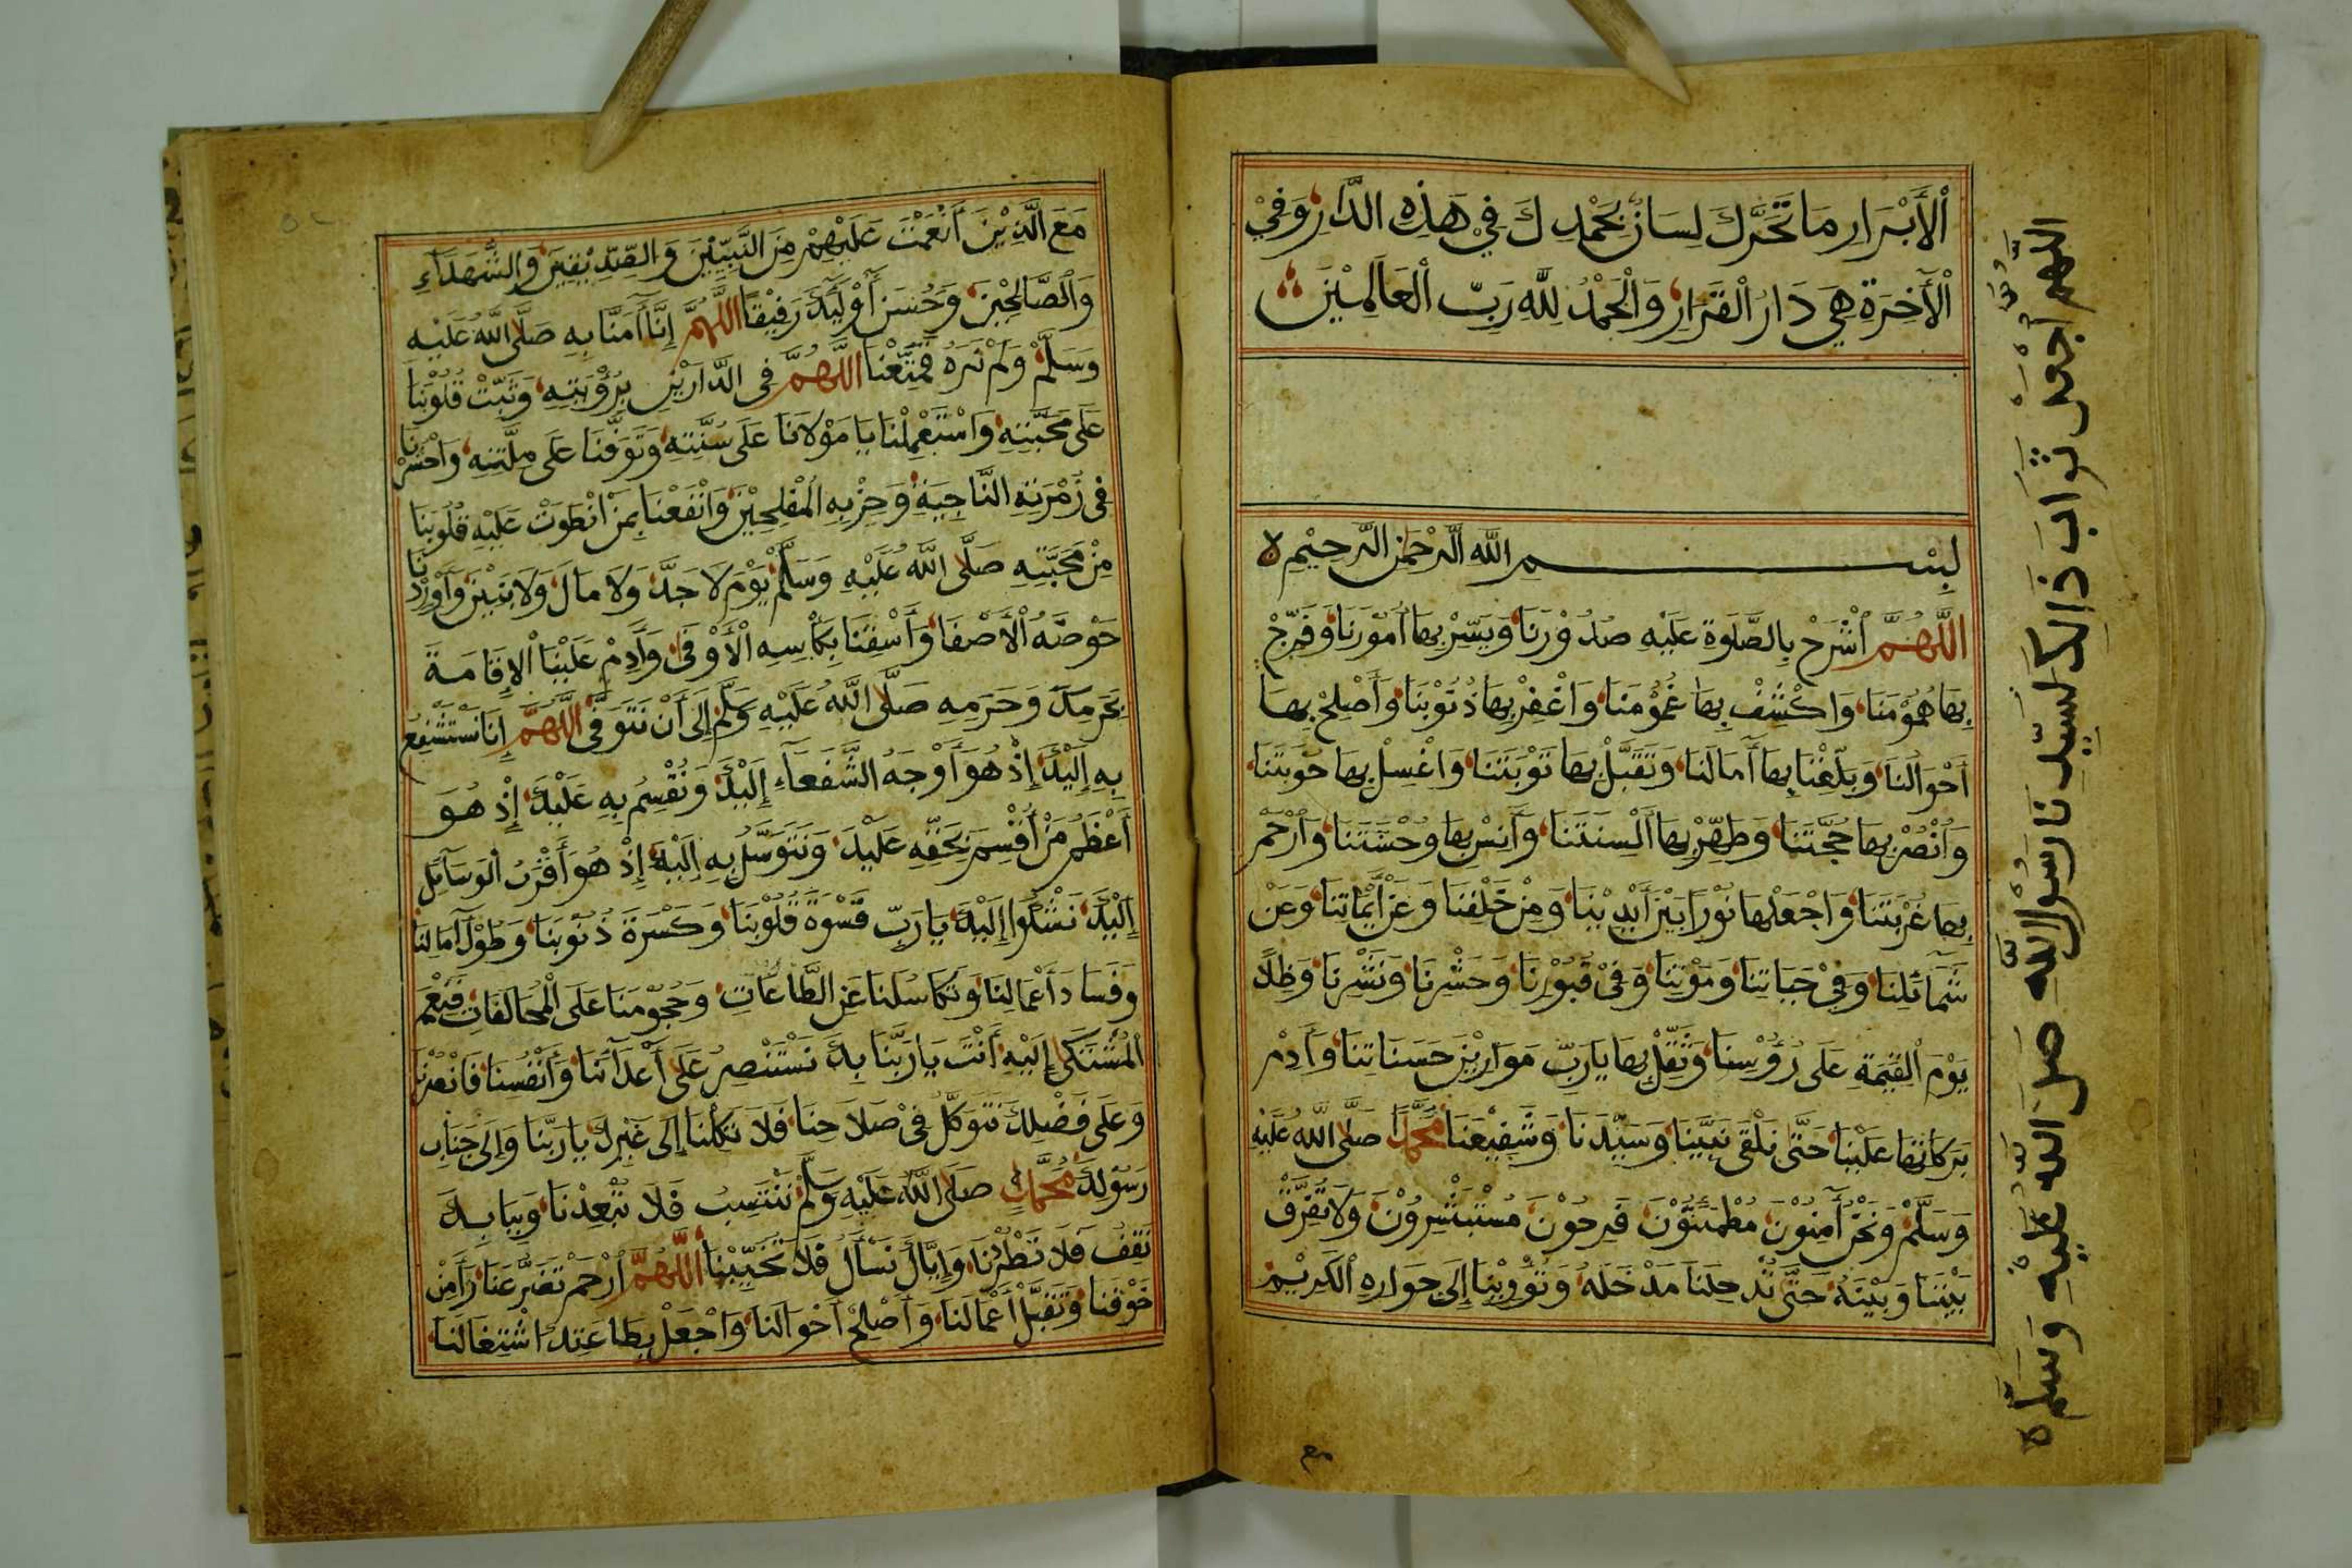 ٱلْأَبْرَارِ مَا تَحَرَّكَ لِسَانٌ بِحَمْدِكَ فِي هَذِهِ الدَّارِ وَفِيْ
الْآخِرَةِ هِيَ دَارُ الْقَرَارِ وَالْحَمْدُ لِلّٰهِ رَبِّ الْعَالَمِيْنَ
بِسْمِ اللّٰهِ الرَّحْمٰنِ الرَّحِيْمِ ه
اَللّٰهُمَّ ٱشْرَحْ بِالصَّلٰوةِ عَلَيْهِ صُدُوْرَنَا وَيَسِّرْ بِهَا أُمُوْرَنَا وَفَرِّجْ
بِهَا هُمُوْمَنَا وَاكْشِفْ بِهَا غُمُوْمَنَا وَاغْفِرْ بِهَا ذُنُوْبَنَا وَأَصْلِحْ بِهَا
أَحْوَالَنَا وَبَلِّغْنَا بِهَا آمَالَنَا وَتَقَبَّلْ بِهَا تَوْبَتَنَا وَاغْسِلْ بِهَا حَوْبَتَنَا
وَانْصُرْ بِهَا حُجَّتَنَا وَطَهِّرْ بِهَا أَلْسِنَتَنَا وَآنِسْ بِهَا وَحْشَتَنَا وَارْحَمْ
بِهَا غُرْبَتَنَا وَاجْعَلْهَا نُوْرًا بَيْنَ أَيْدِيْنَا وَمِنْ خَلْفِنَا وَعَنْ أَيْمَانِنَا وَعَنْ
شَمَآئِلِنَا وَفِيْ حَيَاتِنَا وَمَوْتِنَا وَفِيْ قُبُوْرِنَا وَحَشْرِنَا وَنَشْرِنَا وَظِلًّا
يَوْمَ الْقِيٰمَةِ عَلَى رُؤُوْسِنَا وَثَقِّلْ بِهَا يَا رَبِّ مَوَازِيْنَ حَسَنَاتِنَا وَأَدِمْ
بَرَكَاتِهَا عَلَيْنَا حَتَّى نَلْقَى نَبِيَّنَا وَسَيِّدَنَا وَشَفِيْعَنَا مُحَمَّدًا صَلَّى اللّٰهُ عَلَيْهِ
وَسَلَّمْ وَنَحْنُ آمِنُوْنَ مُطْمَئِنُّوْنَ فَرِحُوْنَ مُسْتَبْشِرُوْنَ وَلَا تُفَرِّقْ
بَيْنَنَا وَبَيْنَهُ حَتَّى تُدْخِلَنَا مَدْخَلَهُ وَتُؤْوِيْنَا إِلَى جِوَارِهِ الْكَرِيْمِ
مع
اللّٰهم أجعل ثَوَابَ ذَالِكَ لسَيِّدِنَا رَسُوْلِ اللّٰهِ صَلَى اللّٰهُ عَلَيْهِ وَسَلَّم ه
مَعَ الَّذِيْنَ أَنْعَمْتَ عَلَيْهِمْ مِنَ النَّبِيِّيْنَ وَالصِّدِّيْقِيْنَ وَالشُّهَدَآءِ
وَالصَّالِحِيْنَ وَحَسُنَ أُوْلٰئِكَ رَفِيْقًا اللّٰهُمَّ إِنَّا آمَنَّا بِهِ صَلَّى اللّٰهُ عَلَيْهِ
وَسَلَّمْ وَلَمْ نَرَهُ فَمَتِّعْنَا اللّٰهُمَّ فِي الدَّارَيْنِ بِرُؤْيَتِهِ وَثَبِّتْ قُلُوْبَنَا
عَلَى مَحَبَّتِهِ وَاسْتَعْمِلْنَا يَا مَوْلَانَا عَلَى سُنَّتِهِ وَتَوَفَّنَا عَلَى مِلَّتِهِ وَاحْشُرْنَا
فِي زُمْرَتِهِ النَّاجِيَةِ وَحِزْبِهِ الْمُفْلِحِيْنَ وَانْفَعْنَا بِمَا انْطَوَتْ عَلَيْهِ قُلُوْبُنَا
مِنْ مَحَبَّتِهِ صَلَّى اللّٰهُ عَلَيْهِ وَسَلَّمْ يَوْمَ لَا جَدَّ وَلَا مَالَ وَلَا بَنِيْنَ وَأَوْرِدْنَا
حَوْضَهُ الْأَصْفَا وَأَسْقِنَا بِكَأْسِهِ الْأَوْفَى وَأَدِمْ عَلَيْنَا الْإِقَامَةَ
بِحَرَمِكَ وَحَرَمِهِ صَلَّى اللّٰهُ عَلَيْهِ وَسَلَّمْ إِلَى أَنْ نَتَوَفَّى اللّٰهُمَّ إِنَّا نَسْتَشْفِعُ
بِهِ إِلَيْكَ إِذْ هُوَ أَوْجَهُ الشُّفَعَآءِ إِلَيْكَ وَنُقْسِمُ بِهِ عَلَيْكَ إِذْ هُوَ
أَعْظَمُ مَنْ أُقْسِمَ بِحَقِّهِ عَلَيْكَ وَنَتَوَسَّلُ بِهِ إِلَيْكَ إِذْ هُوَ أَقْرَبُ الْوَسَآئِلِ
إِلَيْكَ نَشْكُوا إِلَيْكَ يَا رَبِّ قَسْوَةَ قُلُوْبِنَا وَكَسْرَةَ ذُنُوْبِنَا وَطُوْلَ آمَالِنَا
وَفَسَادَ أَعْمَالِنَا وَتَكَاسُلَنَا عَنِ الطَّاعَاتِ وَهُجُوْمَنَا عَلَى الْمُخَالَفَاتِ فَنِعْمَ
الْمُشْتَكَى إِلَيْهِ أَنْتَ يَا رَبَّنَا بِكَ نَسْتَنْصِرُ عَلَى أَعْدَآئِنَا وَأَنْفُسِنَا فَانْصُرْنَا
وَعَلَى فَضْلِكَ نَتَوَكَّلُ فِيْ صَلَاحِنَا فَلَا تَكِلْنَا إِلَى غَيْرِكَ يَا رَبَّنَا وَإِلَى جَنَابِ
رَسُوْلِكَ مُحَمَّدٍ صَلَّى اللّٰهُ عَلَيْهِ وَسَلَّمْ نَنْتَسِبُ فَلَا تُبْعِدْنَا وَبِبَابِكَ
نَقِفُ فَلَا تَطْرُدْنَا وَإِيَّاكَ نَسْأَلُ فَلَا تُخَيِّبْنَا اَللّٰهُمَّ ارْحَمْ تَضَرُّعَنَا وَآمِنْ
خَوْفَنَا وَتَقَبَّلْ أَعْمَالَنَا وَأَصْلِحْ أَحْوَالَنَا وَاجْعَلْ بِطَاعَتِكَ اشْتِغَالَنَا